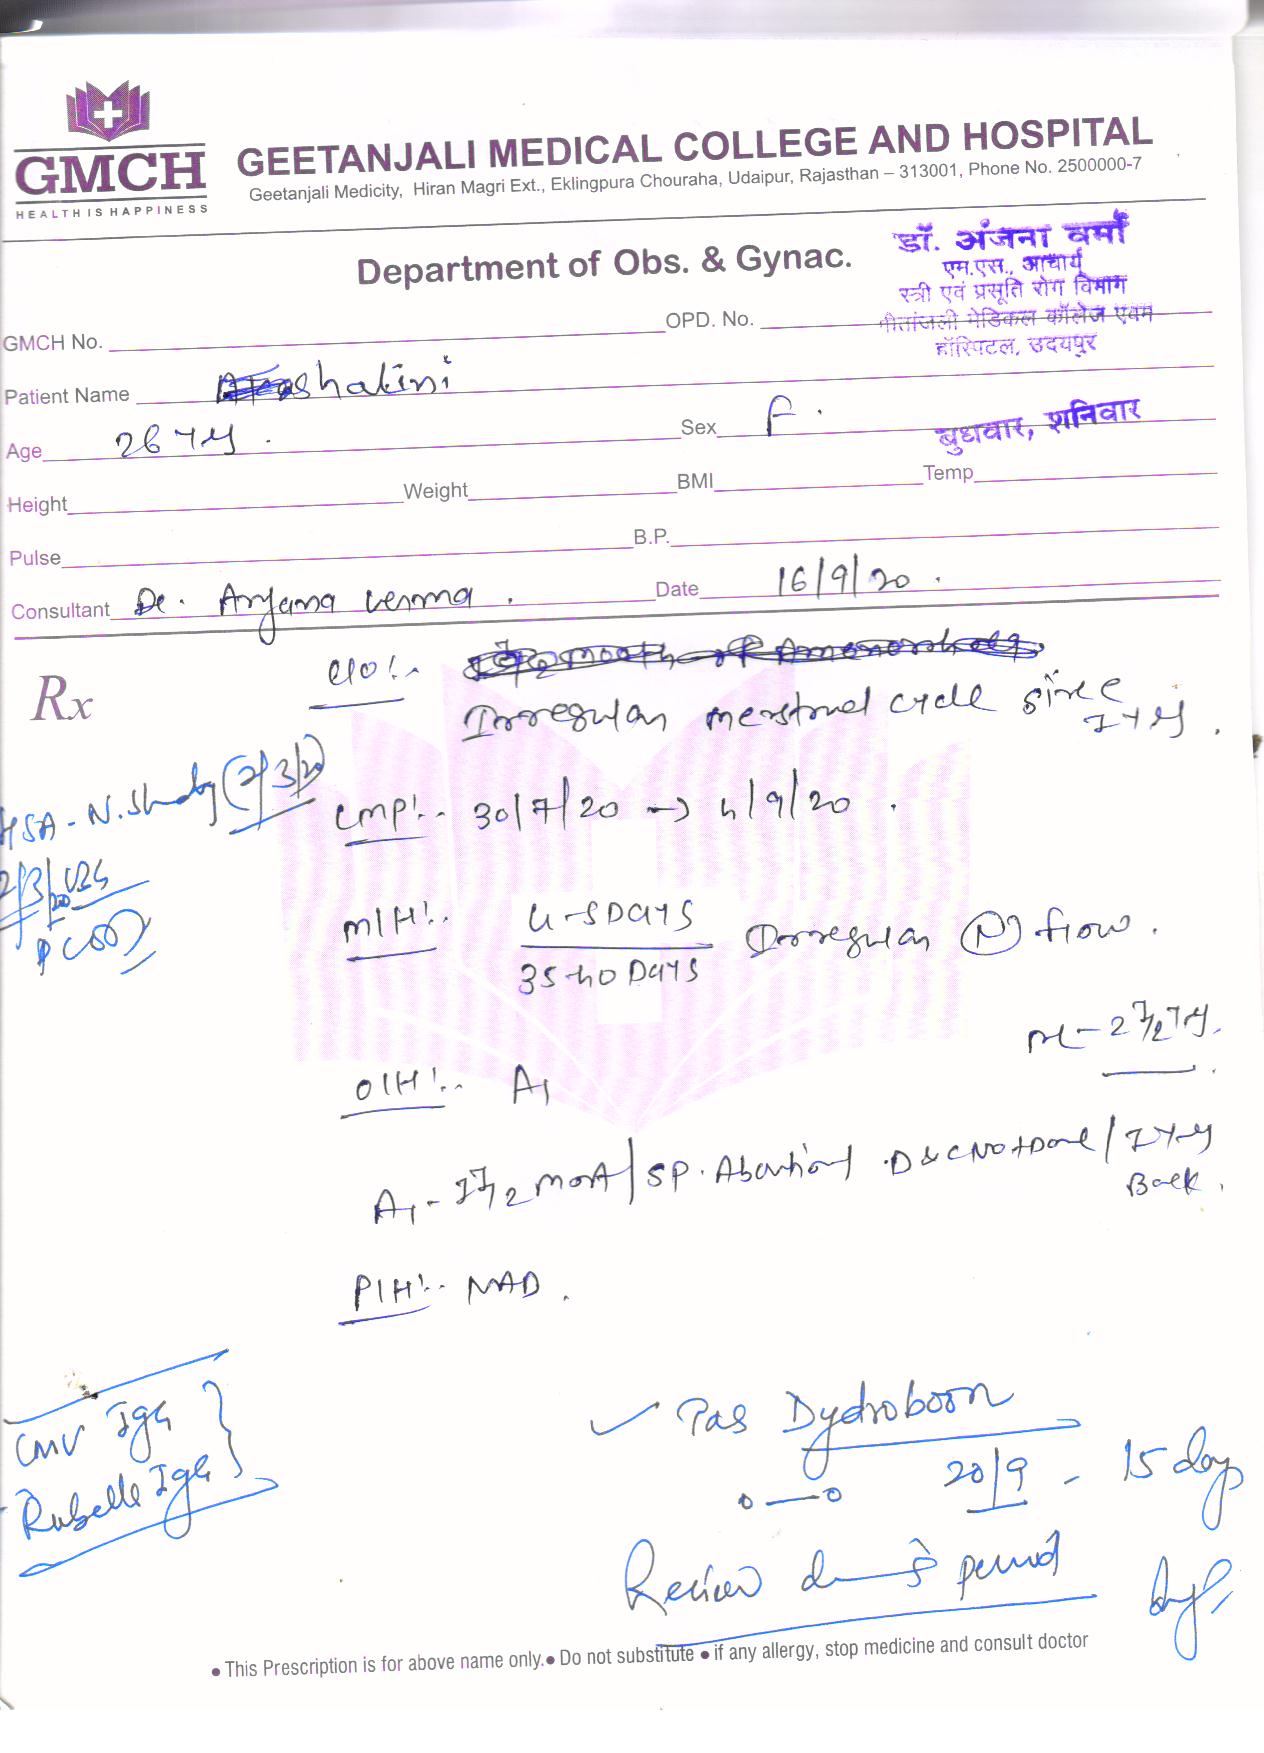 GMCH
HEALTH IS HAPPINESS
GEETANJALI MEDICAL COLLEGE AND HOSPITAL
Geetanjali Medicity, Hiran Magri Ext., Eklingpura Chouraha, Udaipur, Rajasthan – 313001, Phone No. 2500000-7
Department of Obs. & Gynac.
डॉ. अंजना वर्मा
एम.एस., आचार्य
स्त्री एवं प्रसूति रोग विभाग
गीतांजली मेडिकल कॉलेज एवम
हॉस्पिटल, उदयपुर
GMCH No.
OPD. No.
Patient Name shalini
Age 26 yrs.
Sex F.
बुधवार, शनिवार
Height Weight BMI Temp
Pulse B.P.
Consultant Dr. Anjana verma.
Date 16/9/20.
Rx
C/O:-
Irregular menstrual cycle since
1 yrs.
HSA - N. Study (2/3/20)
LMP:- 30/7/20 → 4/9/20.
2/3/20 USG
PCOD
M/H:- 4-5 DAYS
35-40 DAYS
Irregular (N) flow.
ML- 2 1/2 yrs.
O/H:- A1
A1 - 1 1/2 MonA / SP. Abortion / D & C Not Done / 1 yrs
Back.
P/H:- NAD.
CMV IgG
Rubella IgG
Tab Dydroboon
0—0 20/9 - 15 days
Review during period
• This Prescription is for above name only. • Do not substitute • if any allergy, stop medicine and consult doctor